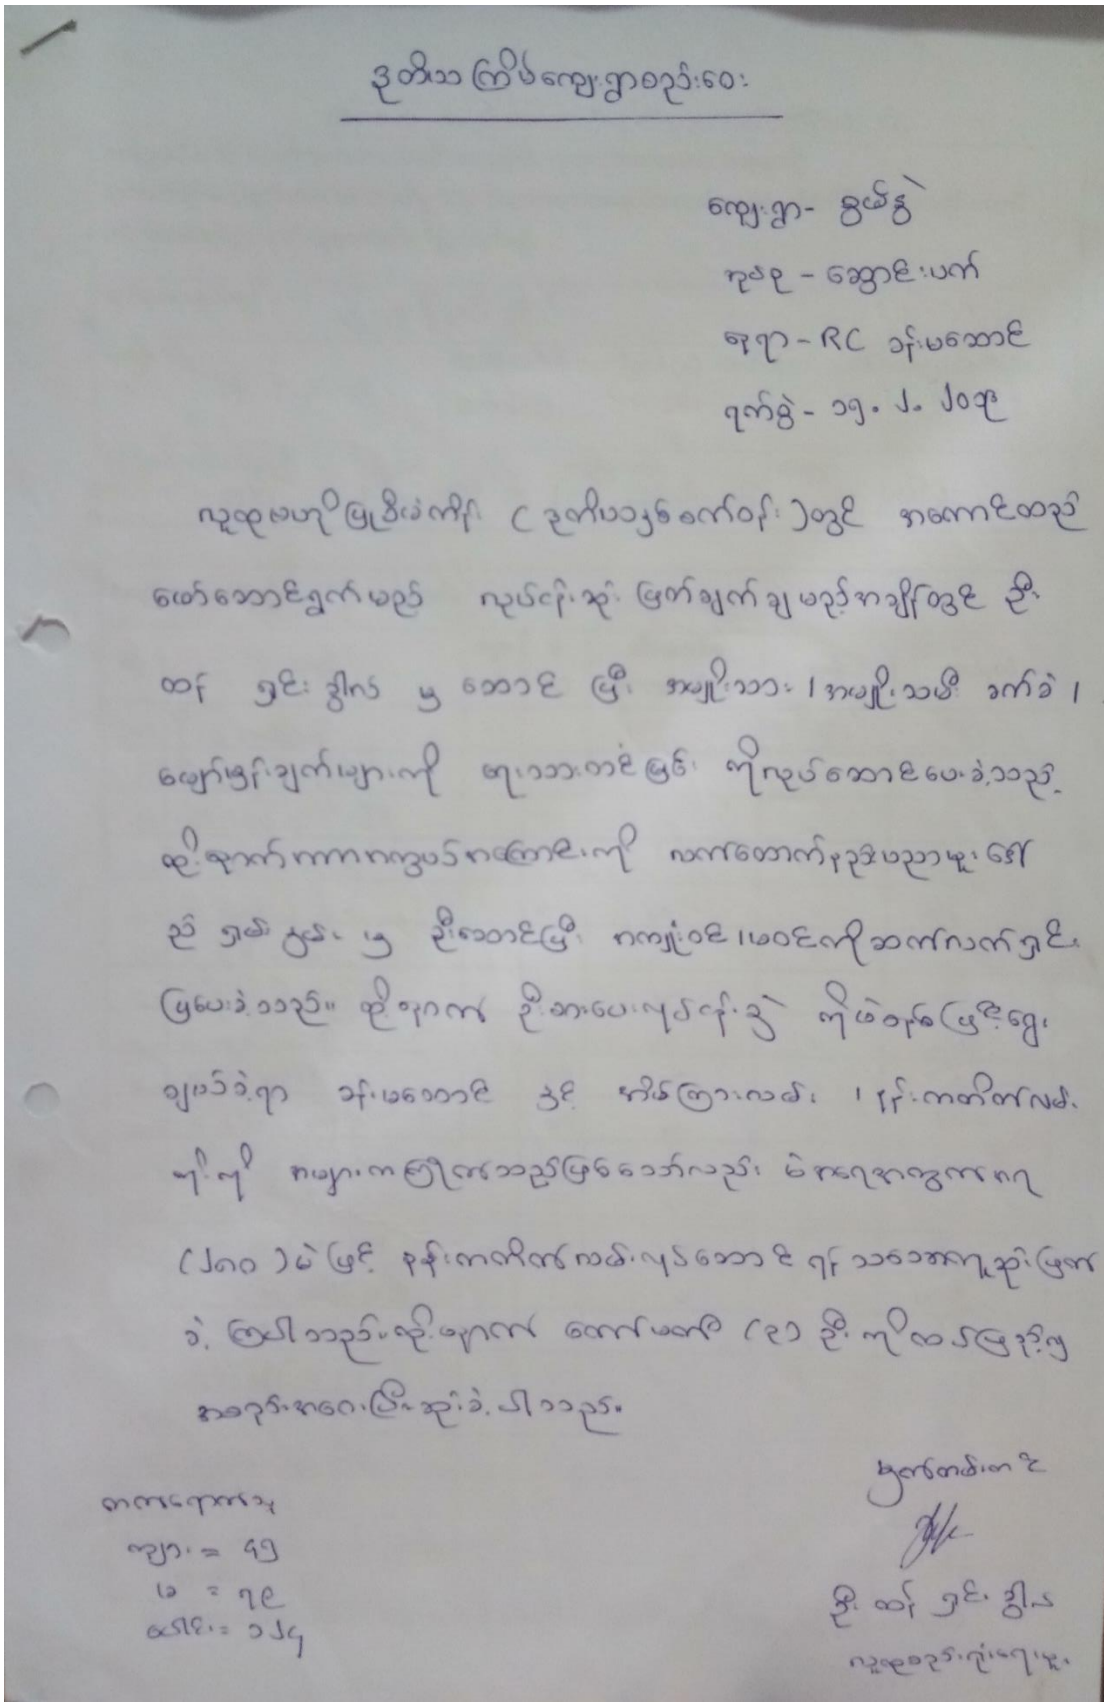 ဒုတိယအကြိမ်ကျေးရွာစည်းဝေး
ကျေးရွာ - စွယ်နွဲ
အုပ်စု - ဆောင်းပက်
နေရာ - RC ခန်းမဆောင်
ရက်စွဲ - ၁၅.၂.၂၀၁၅
လူထုဗဟိုပြုစီမံကိန်း (ဒုတိယနှစ်စက်ဝန်း) တွင် အကောင်ထည်
ဖော်ဆောင်ရွက်မည့် လုပ်ငန်းဆုံးဖြတ်ချက်ချမည့်အချိန်တွင် ဦး
ထန် ရှင်း ဒွါလ် မှ ဆောင် ပြီး အမျိုးသား / အမျိုးသမီး ခက်ခဲ /
မျှော်မှန်းချက်များကို ရေးသားတင်ပြခြင်း ကိုလုပ်ဆောင်ပေးခဲ့သည့်
ထို့နောက် အကြောင်းကို လက်ထောက်နည်းပညာမှူး ဒေါ်
မှ ဦးဆောင်ပြီး အကျုံးဝင် / မဝင်ကိုဆက်လက်ရှင်း
ပြပေးခဲ့သည်။ ထို့နောက် ဦးစားပေးလုပ်ငန်းခွဲ ကိုမဲစနစ်ဖြင့်ရွေး
ချယ်ခဲ့ရာ ခန်းမဆောင် နှင့် အိမ်ကြားလမ်း / နန်းကတိတ်လမ်း
တို့ကို အများကကြိုက်သည်ဖြစ်သော်လည်း မဲအရေအတွက်အရ
(၂၈၀) မဲဖြင့် နန်းကတိတ်လမ်းလုပ်ဆောင်ရန် သဘောတူဆုံးဖြတ်
ခဲ့ကြပါသည်။ ထို့နောက် ကော်မတီ (၉) ဦးကိုထပ်ဖြည့်၍
အစည်းအဝေးပြီးဆုံးခဲ့ပါသည်။
မှတ်တမ်းတင်
တက်ရောက်သူ
ကျား = ၄၅
မ = ၇၉
ပေါင်း = ၁၂၄
ဦး ထန် ရှင်း ဒွါလ်
လူထုစည်းရုံးရေးမှူး